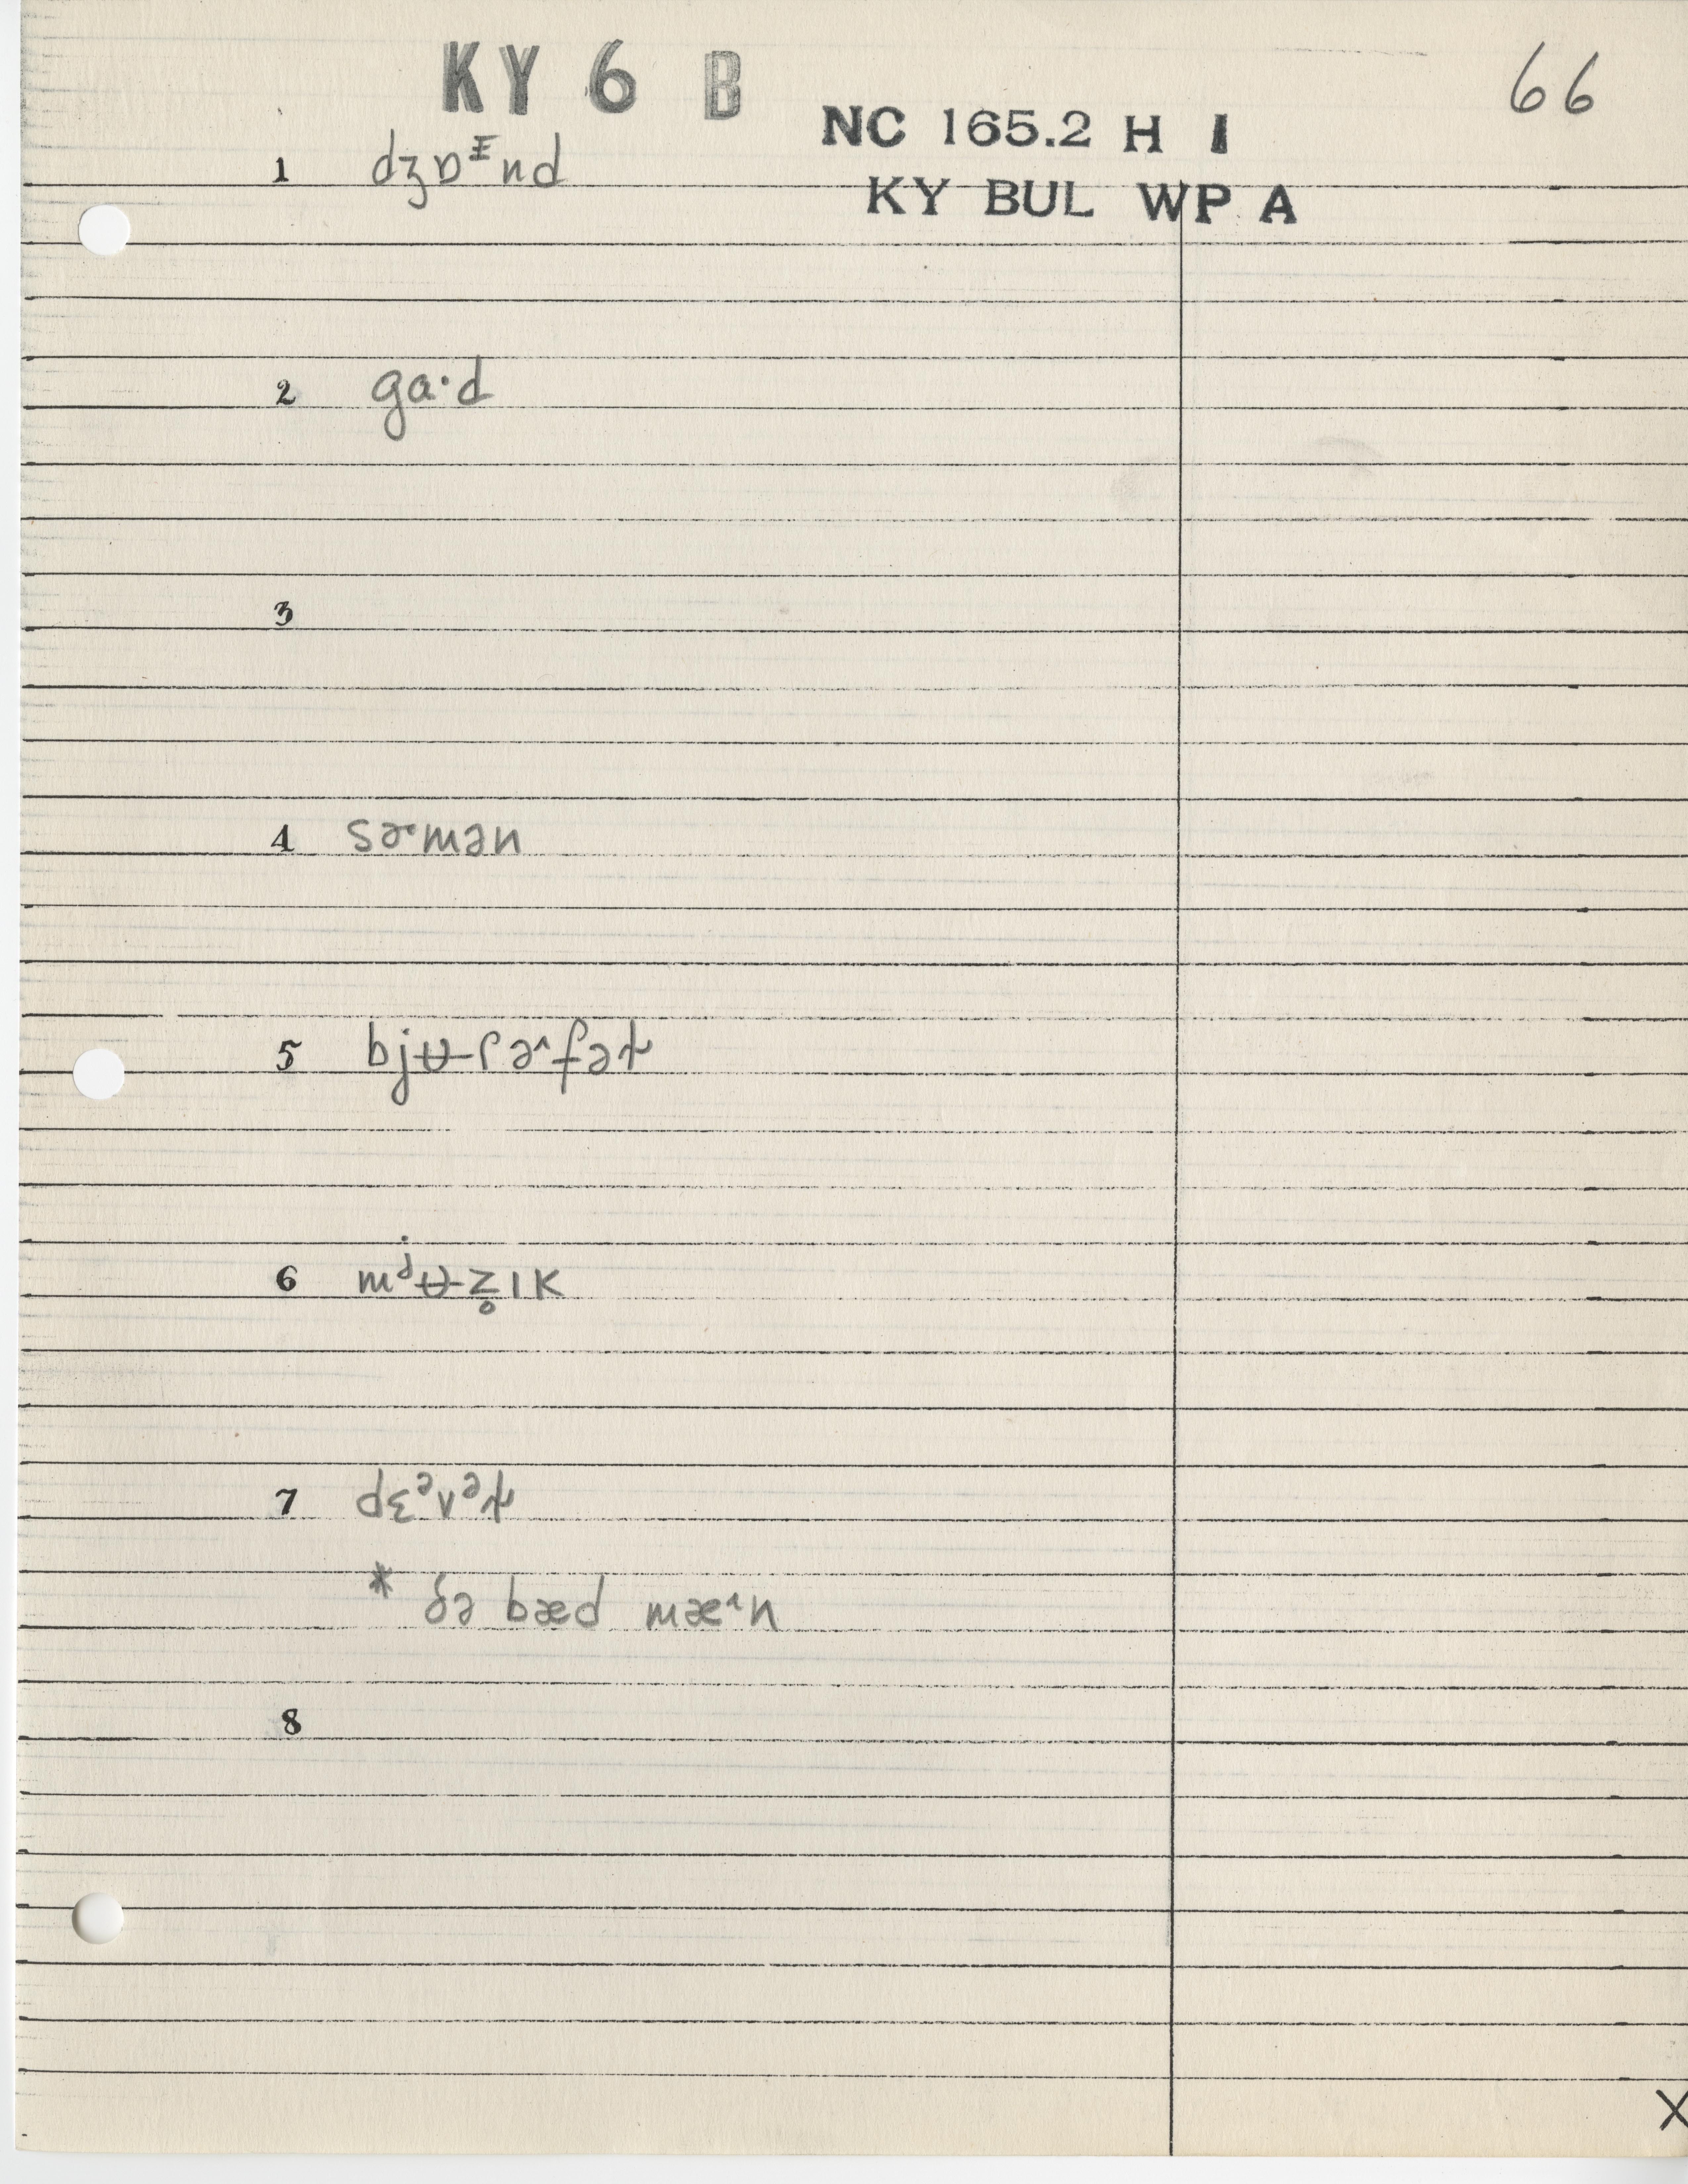 KY 6 B
66
NC 165.2 H I
KY BUL WP A
1 dʒɒᵻnd
2 ga·d
3
4 sɚmən
5 bjʉɾə˄fəɫ
6 mʲʉz̥ɪk
7 dɛᵊvᵊɫ
* ðə bæd mæ˄n
8
X